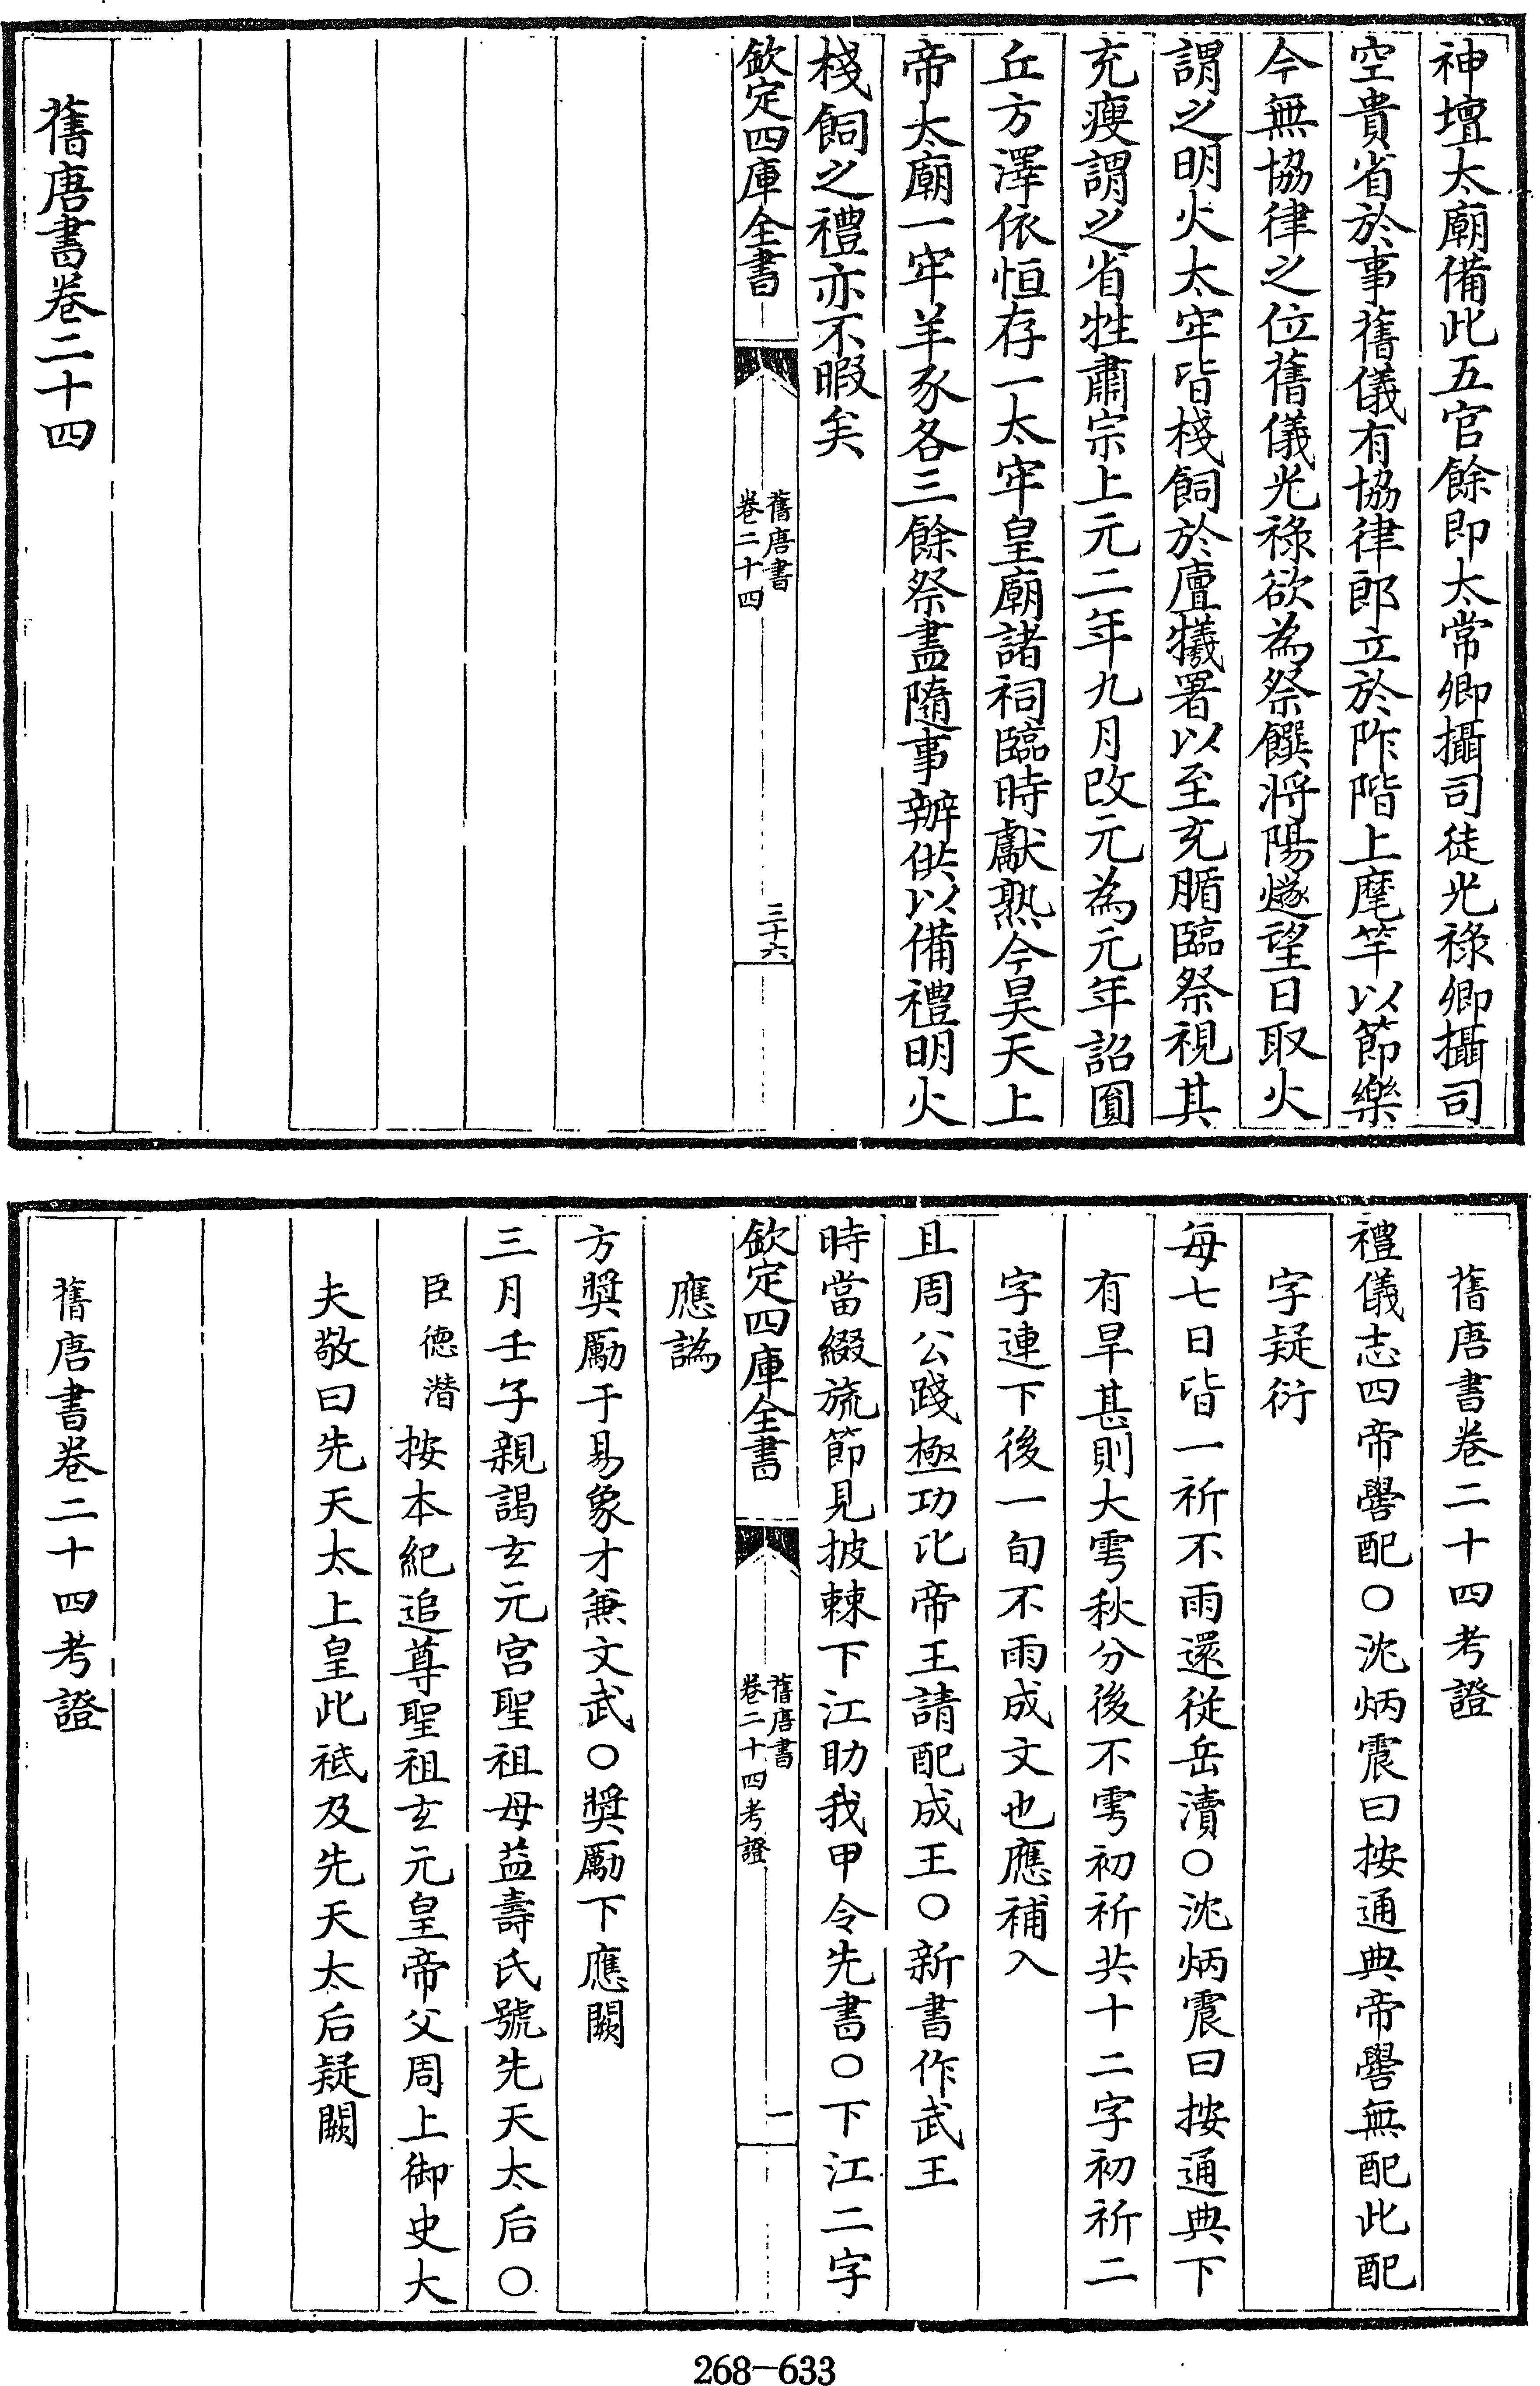 神壇太廟備此五官餘即太常卿攝司徒光祿卿攝司
空貴省於事舊儀有協律郎立於阼階上麾竿以節樂
今無協律之位舊儀光祿欲為祭饌将陽燧望日取火
謂之明火太牢皆棧飼於廩犧署以至充腯臨祭視其
充瘦謂之省牲肅宗上元二年九月改元為元年詔圓
丘方澤依恒存一太牢皇廟諸祠臨時獻熟今昊天上
帝太廟一牢羊豕各三餘祭盡隨事辦供以備禮明火
棧飼之禮亦不暇矣
欽定四庫全書
舊唐書
卷二十四
三十六
舊唐書卷二十四
舊唐書卷二十四考證
禮儀志四帝嚳配○沈炳震曰按通典帝嚳無配此配
字疑衍
每七日皆一祈不雨還從岳瀆○沈炳震曰按通典下
有旱甚則大雩秋分後不雩初祈共十二字初祈二
字連下後一旬不雨成文也應補入
且周公踐極功比帝王請配成王○新書作武王
時當綴旒節見披棘下江助我甲令先書○下江二字
欽定四庫全書
舊唐書
卷二十四考證
一
應譌
方獎勵于易象才兼文武○獎勵下應闕
三月壬子親謁玄元宮聖祖母益壽氏號先天太后○
臣德潛按本紀追尊聖祖玄元皇帝父周上御史大
夫敬曰先天太上皇此祗及先天太后疑闕
舊唐書卷二十四考證
268-633